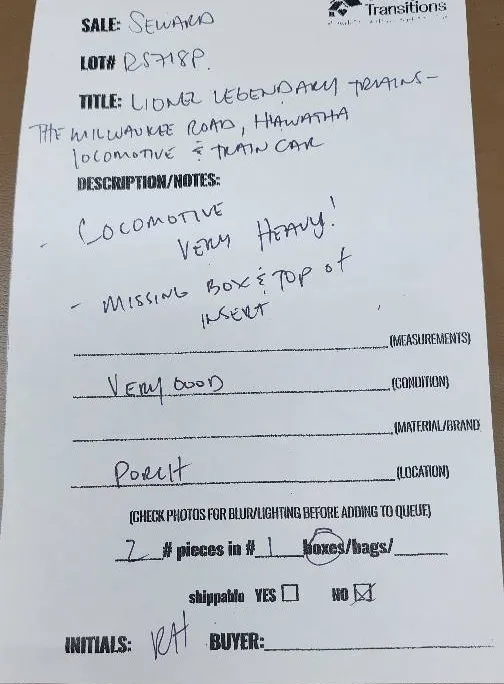 Transitions
SALE: SEWARD
LOT# RS718P
TITLE: LIONEL LEGENDARY TRAINS-
THE MILWAUKEE ROAD, HIAWATHA
LOCOMOTIVE & TRAIN CAR
DESCRIPTION/NOTES:
- LOCOMOTIVE
VERY HEAVY!
- MISSING BOX & TOP of
INSERT
(MEASUREMENTS)
VERY GOOD (CONDITION)
(MATERIAL/BRAND
PORCH (LOCATION)
(CHECK PHOTOS FOR BLUR/LIGHTING BEFORE ADDING TO QUEUE)
2 # pieces in # 1 boxes/bags/
shippable YES NO
INITIALS: RH BUYER: